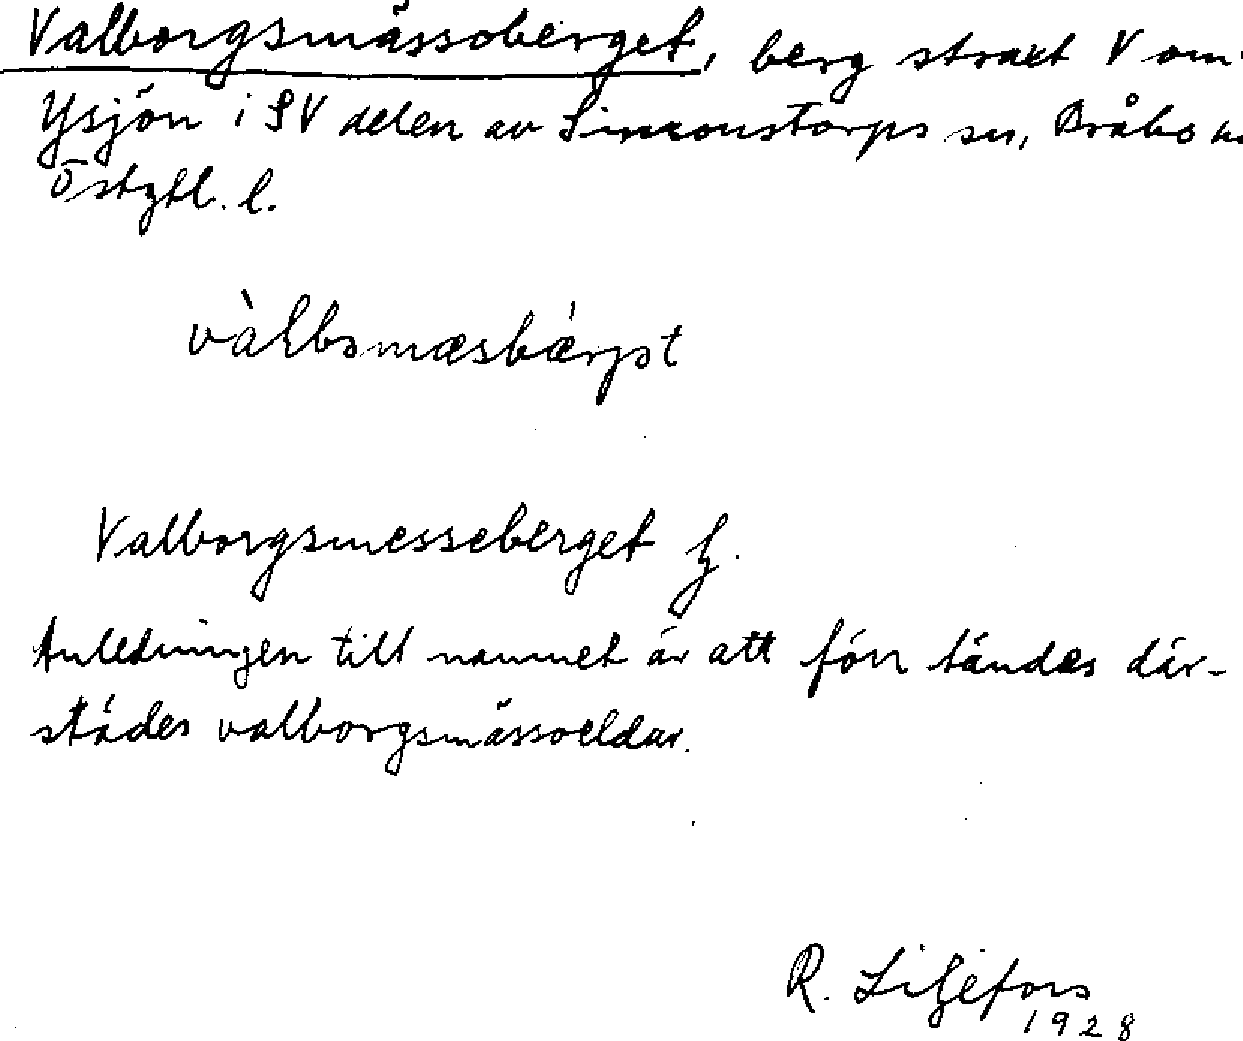 Valborgsmässoberget, berg strax V om
Ysjön i SV delen av Simonstorps sn, Bråbo
Östgtl. l.
vàlbsmæsbærjət
Valborgsmesseberget
Anledningen till namnet är att förr tändes där-
städes valborgsmässoeldar.
R. Liljefors
1928